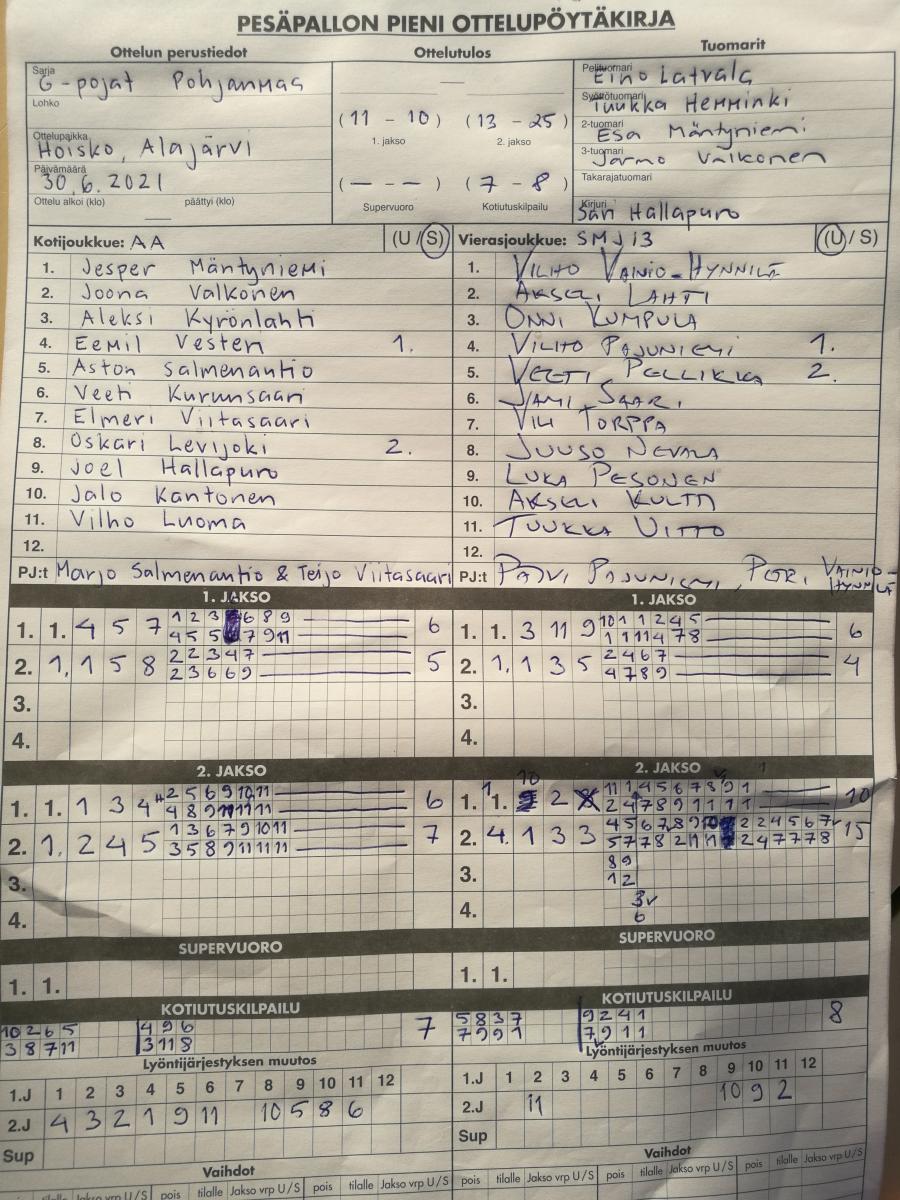 PESÄPALLON PIENI OTTELUPÖYTÄKIRJA
Ottelun perustiedot
Sarja
G-pojat Pohjanmaa
Lohko
Ottelupaikka
Hoisko, Alajärvi
Päivämäärä
30.6.2021
Ottelu alkoi (klo) päättyi (klo)
Ottelutulos
(11 - 10) (13 - 25)
1. jakso 2. jakso
(— - —) (7 - 8)
Supervuoro Kotiutuskilpailu
Tuomarit
Pelituomari
Eino Latvala
Syöttötuomari
Tuukka Hemminki
2-tuomari
Esa Mäntyniemi
3-tuomari
Jarmo Valkonen
Takarajatuomari
Kirjuri
Sari Hallapuro
Kotijoukkue: AA (U / S)
1. Jesper Mäntyniemi
2. Joona Valkonen
3. Aleksi Kyrönlahti
4. Eemil Vesten 1.
5. Aston Salmenautio
6. Veeti Kurunsaari
7. Elmeri Viitasaari
8. Oskari Levijoki 2.
9. Joel Hallapuro
10. Jalo Kantonen
11. Vilho Luoma
12.
PJ:t Marjo Salmenautio & Teijo Viitasaari
Vierasjoukkue: SMJ i3 (U / S)
1. VILHO VAINIO-HYNNILÄ
2. AKSELI LAHTI
3. ONNI KUMPULA
4. VILHO PAJUNIEMI 1.
5. VEETI PELLIKKA 2.
6. SAMI SAARI
7. VILI TORPPA
8. JUUSO NEVALA
9. LUKA PESONEN
10. AKSELI KULTTI
11. TUUKKA UITTO
12.
PJ:t PÄIVI PAJUNIEMI, PETRI VAINIO-HYNNILÄ
1. JAKSO
1. 1. 4 5 7 1 2 3 6 8 9 6
4 5 5 7 9 11
2. 1. 1 5 8 2 2 3 4 7 5
2 3 6 6 9
3.
4.
1. JAKSO
1. 1. 3 11 9 10 1 1 2 4 5 6
1 1 11 4 7 8
2. 1. 1 3 5 2 4 6 7 4
4 7 8 9
3.
4.
2. JAKSO
1. 1. 1 3 4 2 5 6 9 10 11 6
4 8 9 11 11 11
2. 1. 2 4 5 1 3 6 7 9 10 11 7
3 5 8 9 11 11 11
3.
4.
2. JAKSO
1. 1. 10 2 11 1 4 5 6 7 8 9 1 10
2 4 7 8 9 1 1 1 1
2. 4. 1 3 3 4 5 6 7 8 9 10 2 2 4 5 6 7 15
5 7 7 8 2 11 11 2 4 7 7 7 8
3. 8 9
1 2
4. 3
6
SUPERVUORO
1. 1.
SUPERVUORO
1. 1.
KOTIUTUSKILPAILU
10 2 6 5 4 9 6 7
3 8 7 11 3 11 8
KOTIUTUSKILPAILU
5 8 3 7 9 2 4 1 8
7 9 9 1 7 9 1 1
Lyöntijärjestyksen muutos
1.J 1 2 3 4 5 6 7 8 9 10 11 12
2.J 4 3 2 1 9 11 10 5 8 6
Sup
Lyöntijärjestyksen muutos
1.J 1 2 3 4 5 6 7 8 9 10 11 12
2.J 11 10 9 2
Sup
Vaihdot
tilalle Jakso vrp U / S pois tilalle Jakso vrp U / S pois tilalle Jakso vrp U / S
Vaihdot
pois tilalle Jakso vrp U / S pois tilalle Jakso vrp U / S pois tilalle Jakso vrp U / S